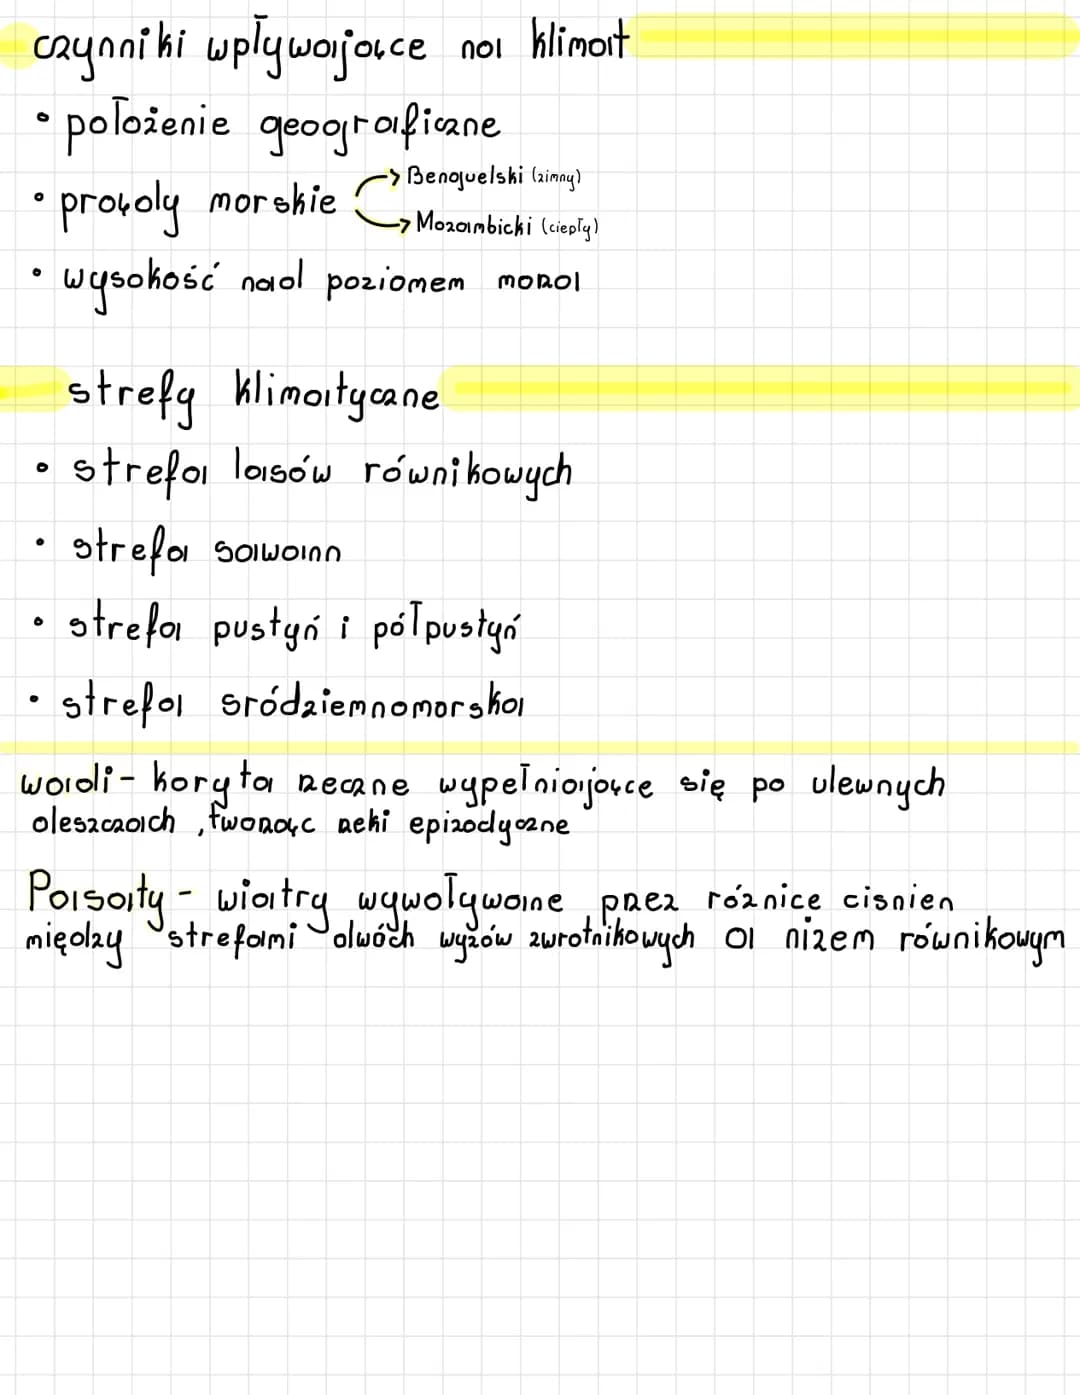 czynniki wpływające na klimat
• położenie geograficzne
• prądy morskie → Benguelski (zimny)
→ Mozambicki (ciepły)
• wysokość nad poziomem morza
strefy klimatyczne
• strefa lasów równikowych
• strefa sawann
• strefa pustyń i półpustyń
• strefa sródziemnomorska
wadi - koryta rzeczne wypełniające się po ulewnych
deszczach, tworząc rzeki epizodyczne
Pasaty - wiatry wywoływane przez róznice cisnien
między strefami dwóch wyżów zwrotnikowych a nizem równikowym